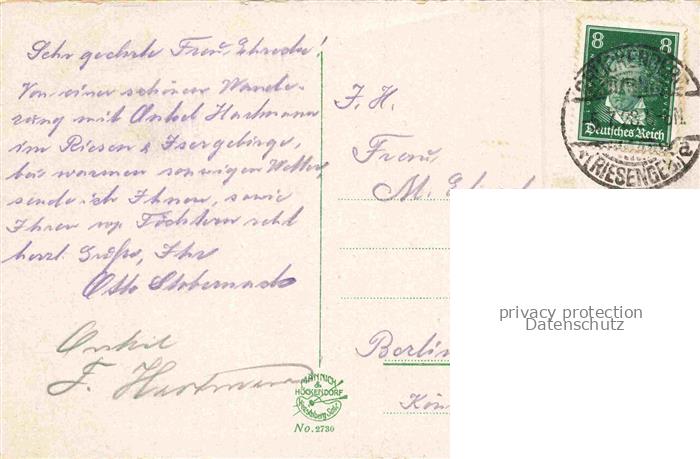 Sehr geehrte Frau Ehreke!
Von einer schönen Wande-
rung mit Onkel Hartmann
im Riesen & Isergebirge,
bei warmen sonnigen Wetter,
sende ich Ihnen, sowie
Ihren Töchtern recht
herzl. Grüße, Ihr
Otto
Onkel
F. Hartmann
F. H.
Frau
M.
Berlin
8 8
Deutsches Reich
(RIESENGEB.)
MÄNNICH
&
HÖCKENDORF
No. 2730
privacy protection
Datenschutz